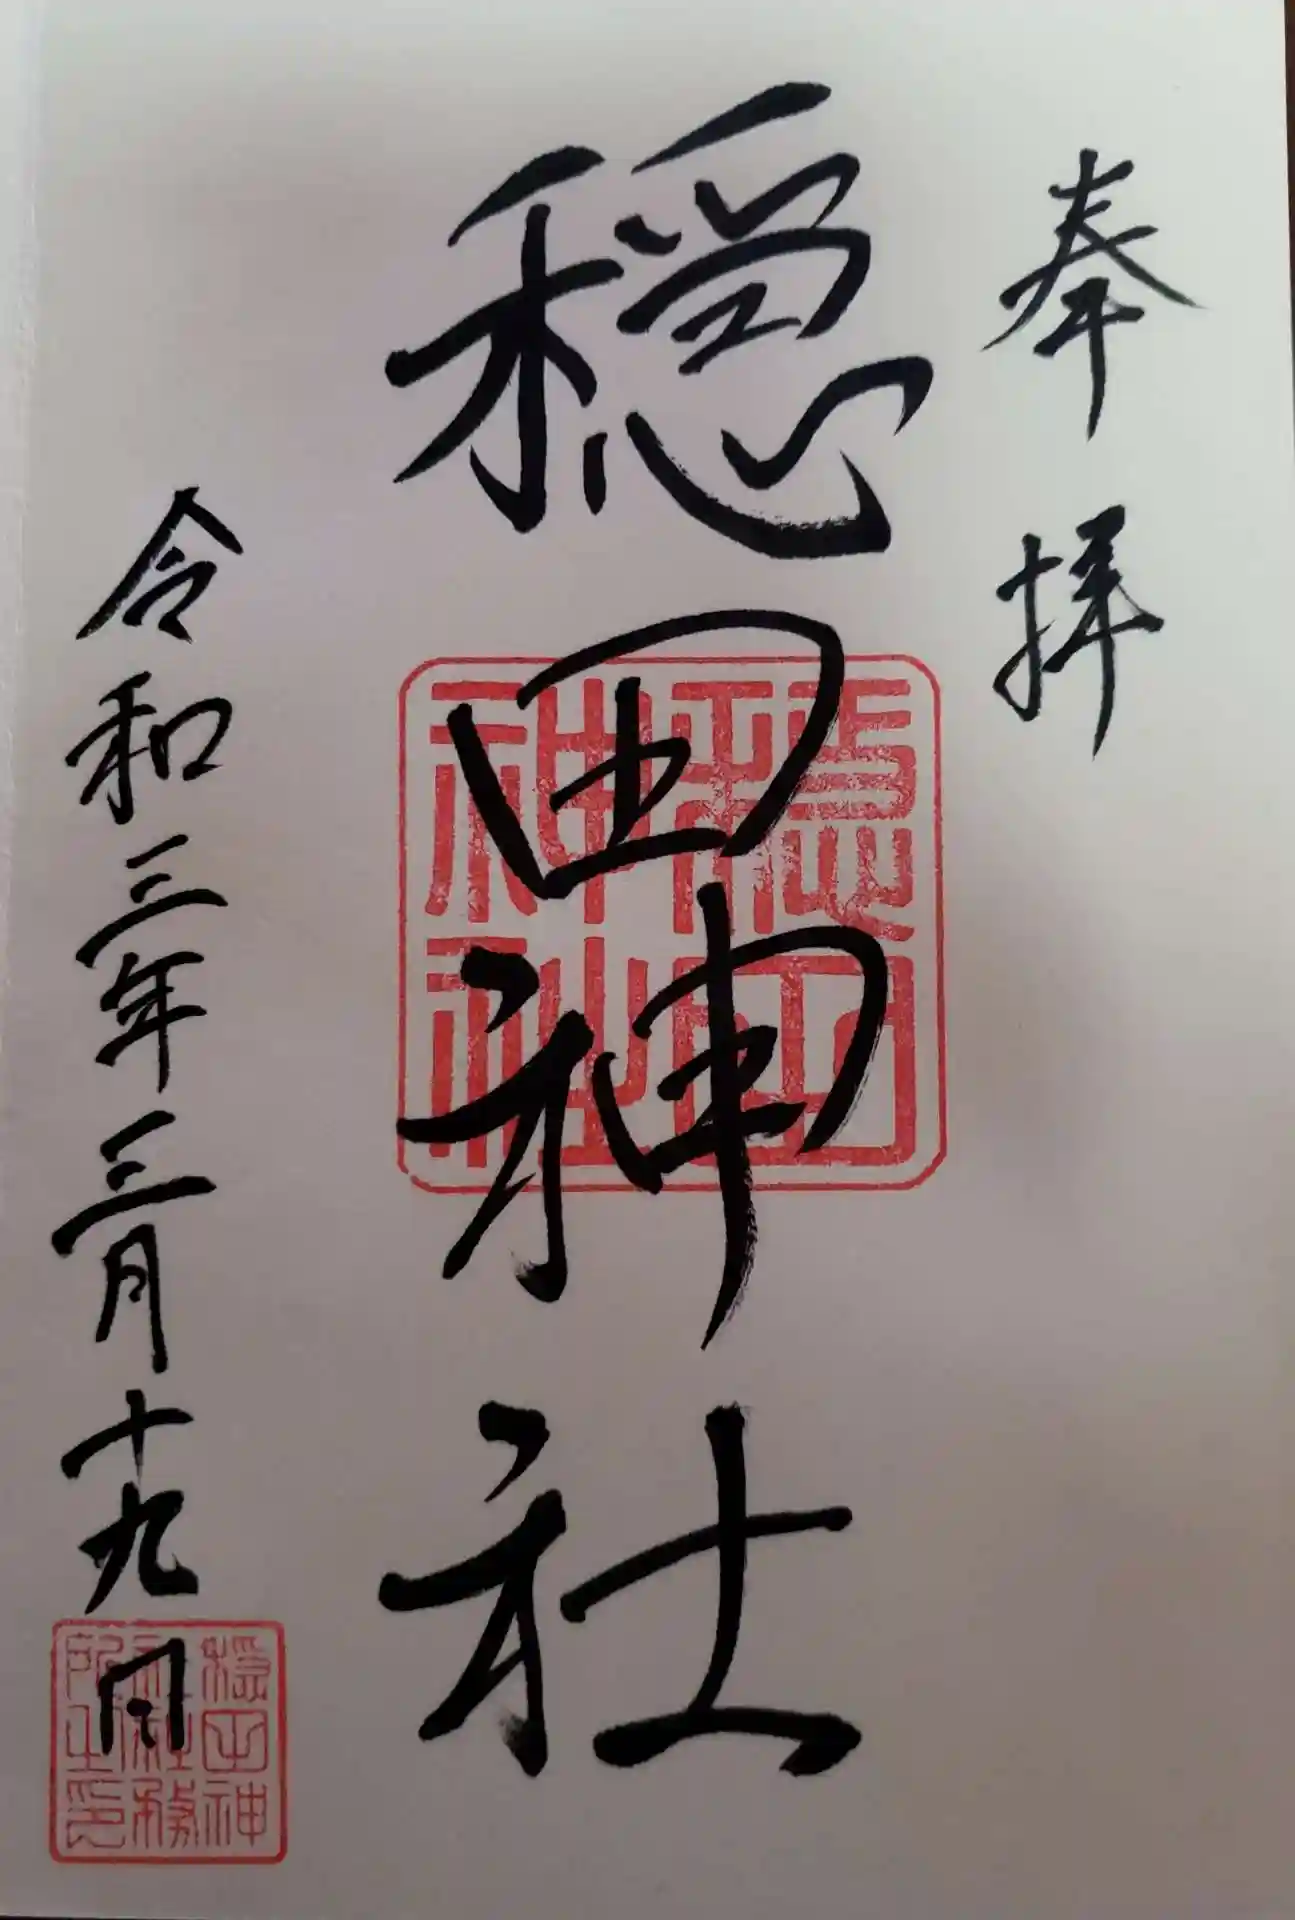 奉拝
穏田神社
穏田神社
令和三年三月十九日
穏田神
社務
所之印